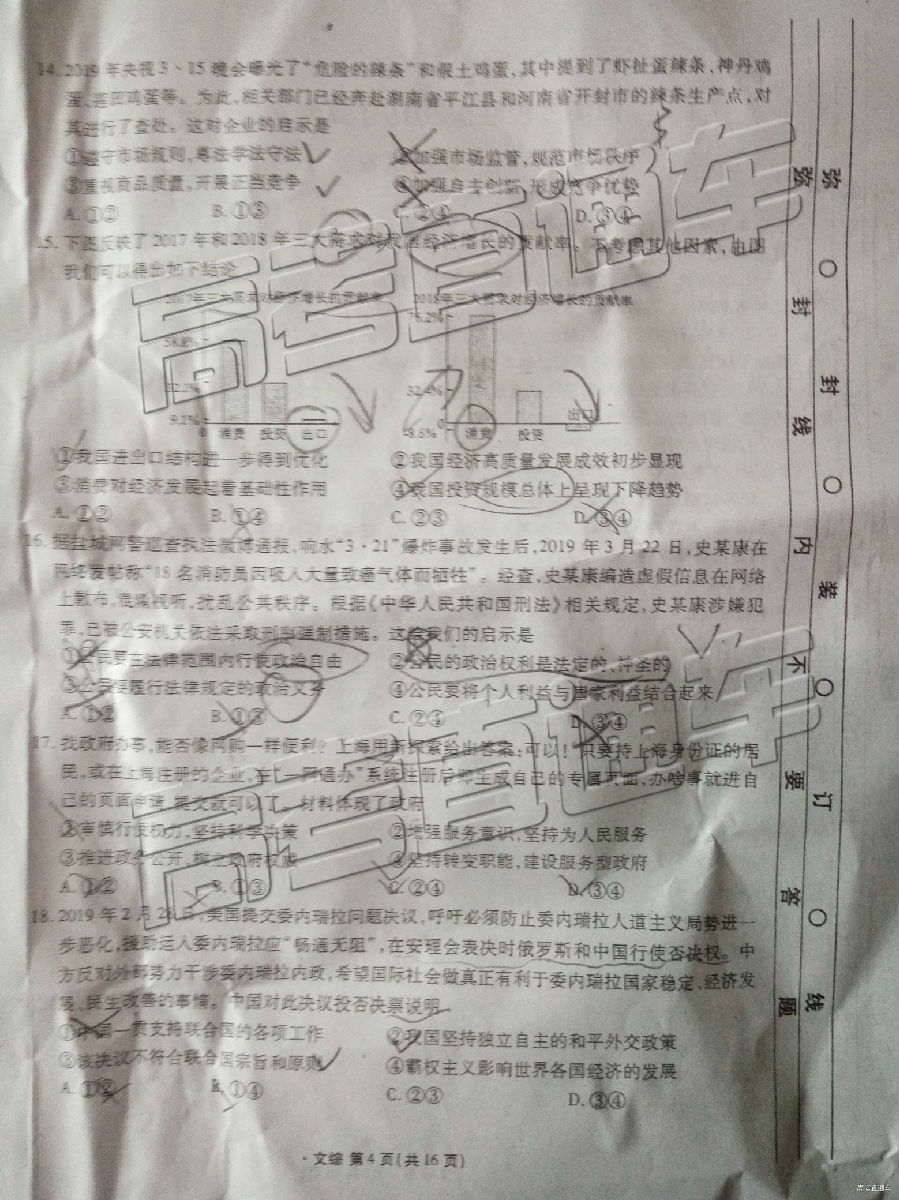 14. 2019年央视3·15晚会曝光了“危险的辣条”和假土鸡蛋,其中提到了虾扯蛋辣条、神丹鸡
蛋、莲田鸡蛋等。为此,相关部门已经奔赴湖南省平江县和河南省开封市的辣条生产点,对
其进行了查处。这对企业的启示是
①遵守市场规则,尊法学法守法 ②加强市场监管,规范市场秩序
③重视商品质量,开展正当竞争 ④加强自主创新,形成竞争优势
A. ①② B. ①③ C. ②④ D. ③④
15. 下图反映了2017年和2018年三大需求对我国经济增长的贡献率。不考虑其他因素,由图
我们可以得出如下结论
2017年三大需求对经济增长的贡献率 2018年三大需求对经济增长的贡献率
58.8% 76.2%
32.4%
9.1% -8.6%
0 消费 投资 出口 0 消费 投资 出口
①我国进出口结构进一步得到优化 ②我国经济高质量发展成效初步显现
③消费对经济发展起着基础性作用 ④我国投资规模总体上呈现下降趋势
A. ①② B. ①④ C. ②③ D. ③④
16. 据盐城网警巡查执法微博通报,响水“3·21”爆炸事故发生后,2019年3月22日,史某康在
网络发帖称“18名消防员因吸入大量致癌气体而牺牲”。经查,史某康编造虚假信息在网络
上散布,混淆视听,扰乱公共秩序。根据《中华人民共和国刑法》相关规定,史某康涉嫌犯
罪,已被公安机关依法采取刑事强制措施。这给我们的启示是
①公民要在法律范围内行使政治自由 ②公民的政治权利是法定的、神圣的
③公民要履行法律规定的政治义务 ④公民要将个人利益与国家利益结合起来
A. ①② B. ①③ C. ②④ D. ③④
17. 找政府办事,能否像网购一样便利?上海用新探索给出答案:可以!只要持上海身份证的居
民,或在上海注册的企业,在“一网通办”系统注册后即生成自己的专属页面,办啥事就进自
己的页面申请,提交就可以了。材料体现了政府
①审慎行使权力,坚持科学决策 ②增强服务意识,坚持为人民服务
③推进政务公开,树立政府权威 ④坚持转变职能,建设服务型政府
A. ①② B. ①③ C. ②④ D. ③④
18. 2019年2月2 日,美国提交委内瑞拉问题决议,呼吁必须防止委内瑞拉人道主义局势进一
步恶化,援助运入委内瑞拉应“畅通无阻”,在安理会表决时俄罗斯和中国行使否决权。中
方反对外部势力干涉委内瑞拉内政,希望国际社会做真正有利于委内瑞拉国家稳定、经济发
展、民生改善的事情。中国对此决议投否决票说明
①中国一贯支持联合国的各项工作 ②我国坚持独立自主的和平外交政策
③该决议不符合联合国宗旨和原则 ④霸权主义影响世界各国经济的发展
A. ①② B. ①④ C. ②③ D. ③④
·文综 第4页(共16页)
弥 封 线 内 不 要 答 题
弥 ○ 封 ○ 装 ○ 订 ○ 线
高考直通车
高考直通车
高考直通车